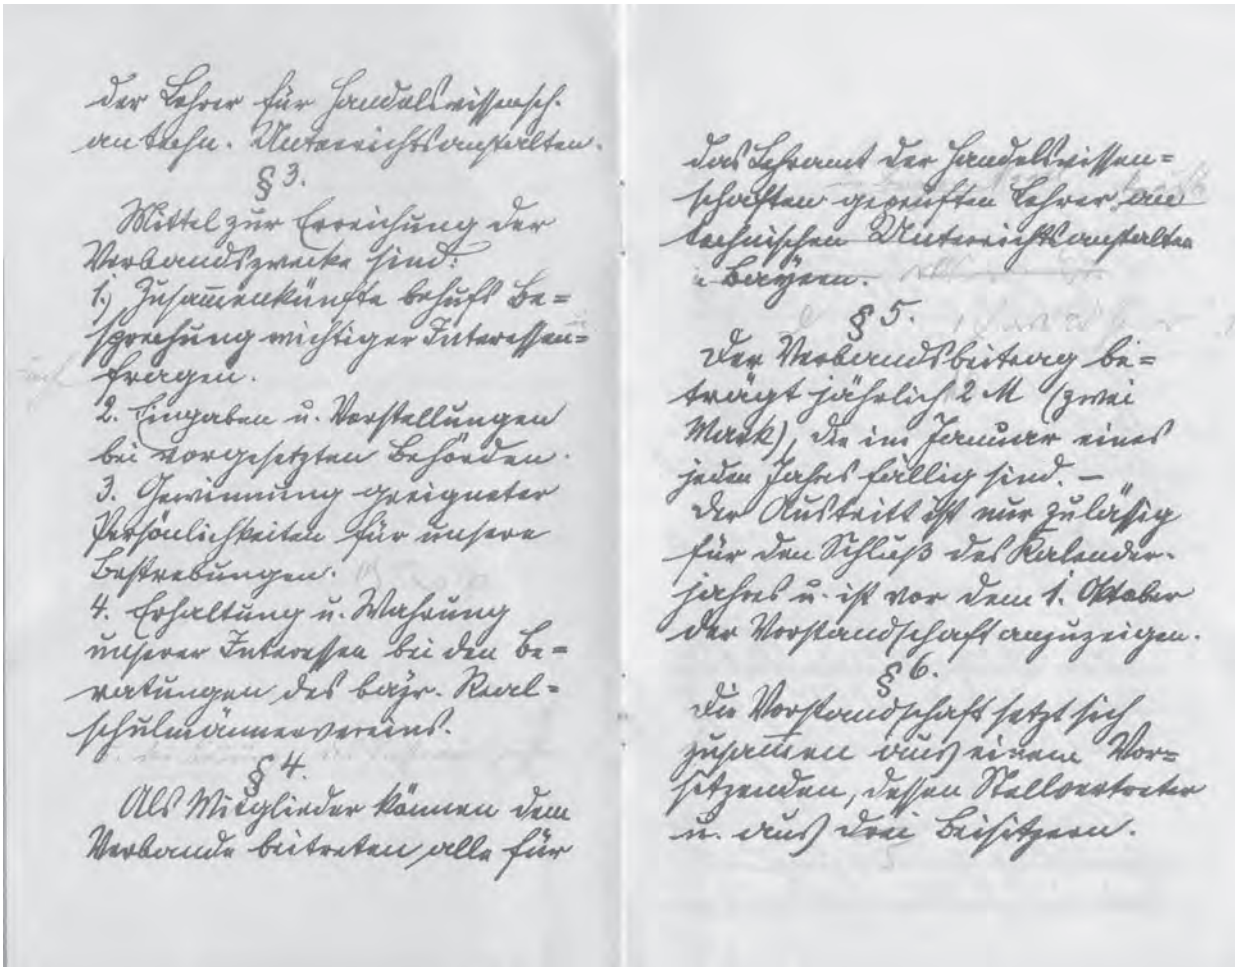 der Lehrer für Handelswissensch.
an techn. Unterrichtsanstalten.
§ 3.
Mittel zur Erreichung der
Verbandszwecke sind:
1.) Zusam̅enkünfte behufs Be=
sprechung wichtiger Interessen=
fragen.
2. Eingaben u. Vorstellungen
bei vorgesetzten Behörden.
3. Gewinnung geeigneter
Persönlichkeiten für unsere
Bestrebungen.
4. Erhaltung u. Wahrung
unserer Interessen bei den Be=
ratungen des bayr. Real=
schulmännervereins.
§ 4.
Als Mitglieder können dem
Verbande beitreten alle für
das Lehramt der Handelswissen=
schaften geprüften Lehrer an
technischen Unterrichtsanstalten
i. Bayern.
§ 5.
Der Verbandsbeitrag be=
trägt jährlich 2 M (zwei
Mark), die im Januar eines
jeden Jahres fällig sind. –
Der Austritt ist nur zuläsig
für den Schluß des Kalender-
jahres u. ist vor dem 1. Oktober
der Vorstandschaft anzuzeigen.
§ 6.
Die Vorstandschaft setzt sich
zusam̅en aus einem Vor=
sitzenden, dessen Stellvertreter
u. aus drei Beisitzern.